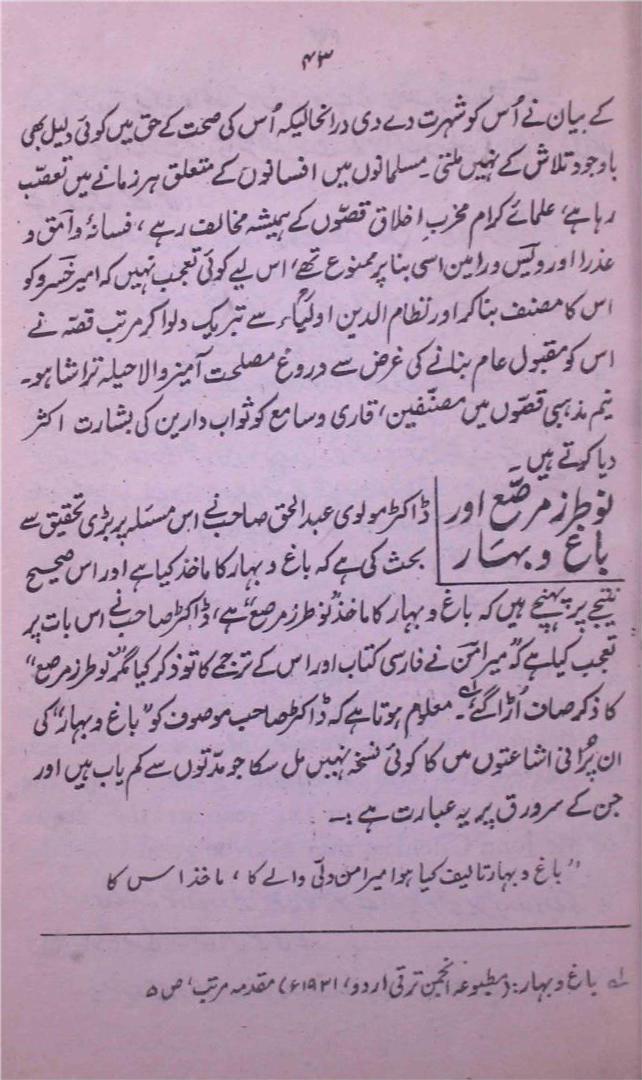 ۴۳
کے بیان نے اُس کو شہرت دے دی درانحالیکہ اُس کی صحت کے حق میں کوئی دلیل بھی
باوجود تلاش کے نہیں ملتی۔ مسلمانوں میں افسانوں کے متعلق ہر زمانے میں تعصّب
رہا ہے، علمائے کرام مخربِ اخلاق قصّوں کے ہمیشہ مخالف رہے، فسانۂ وامق و
عذرا اور ویس ورامین اسی بنا پر ممنوع تھے، اس لیے کوئی تعجب نہیں کہ امیر خسرو کو
اس کا مصنف بنا کر اور نظام الدین اولیاؒء سے تبریک دلوا کر مرتب قصّہ نے
اس کو مقبول عام بنانے کی غرض سے دروغ مصلحت آمیز والا حیلہ تراشا ہو۔
نیم مذہبی قصّوں میں مصنّفین، قاری و سامع کو ثواب دارین کی بشارت اکثر
دیا کرتے ہیں۔
نوطرز مرصّع اور
باغ و بہار
ڈاکٹر مولوی عبدالحق صاحب نے اس مسئلہ پر بڑی تحقیق سے
بحث کی ہے کہ باغ و بہار کا ماخذ کیا ہے اور اس صحیح
نتیجے پر پہنچے ہیں کہ باغ و بہار کا ماخذ ”نوطرز مرصع“ ہے، ڈاکٹر صاحب نے اس بات پر
تعجب کیا ہے کہ ”میرامّن نے فارسی کتاب اور اس کے ترجمے کا تو ذکر کیا مگر ”نوطرز مرصع“
کا ذکر صاف اُڑا گئے“ لہ۔ معلوم ہوتا ہے کہ ڈاکٹر صاحب موصوف کو ”باغ و بہار“ کی
ان پُرانی اشاعتوں میں کا کوئی نسخہ نہیں مل سکا جو مدّتوں سے کم یاب ہیں اور
جن کے سرورق پر یہ عبارت ہے:۔
”باغ و بہار تالیف کیا ہوا میرامن دلّی والے کا، ماخذ اس کا
لہ باغ و بہار: (مطبوعہ انجمن ترقی اردو، ۱۹۳۱ء) مقدمہ مرتب، ص ۵